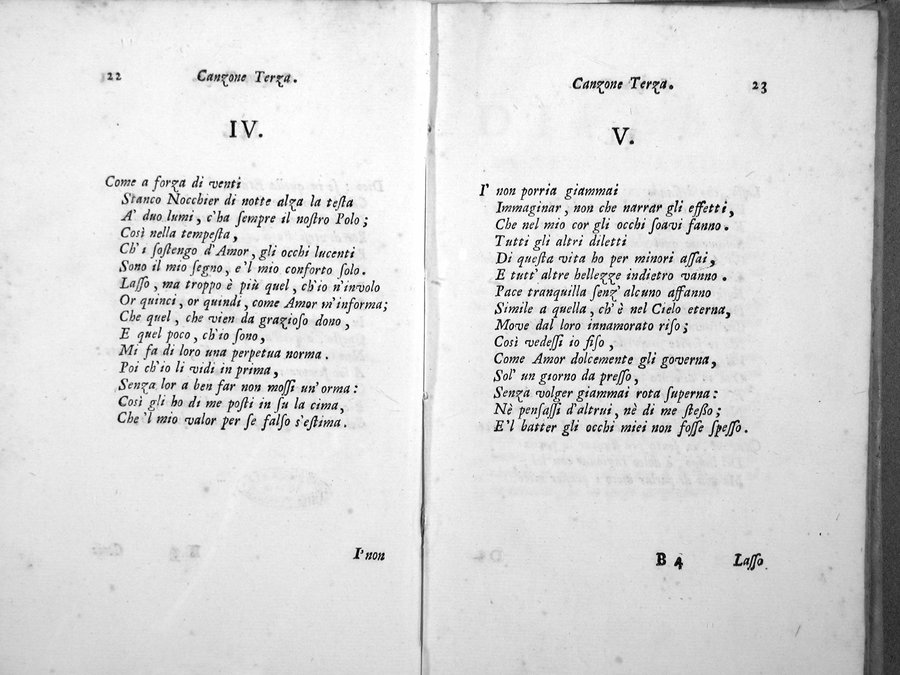 22 Canzone Terza.
IV.
Come a forza di venti
Stanco Nocchier di notte alza la teſta
A' duo lumi, c'ha ſempre il noſtro Polo;
Così nella tempeſta,
Ch'i ſoſtengo d'Amor, gli occhi lucenti
Sono il mio ſegno, e'l mio conforto ſolo.
Laſſo, ma troppo è più quel, ch'io n'involo
Or quinci, or quindi, come Amor m'informa;
Che quel, che vien da grazioſo dono,
E quel poco, ch'io ſono,
Mi fa di loro una perpetua norma.
Poi ch'io li vidi in prima,
Senza lor a ben far non moſſi un'orma:
Così gli ho di me poſti in ſu la cima,
Che'l mio valor per ſe falſo s'eſtima.
I' non
Canzone Terza. 23
V.
I' non porria giammai
Immaginar, non che narrar gli effetti,
Che nel mio cor gli occhi ſoavi fanno.
Tutti gli altri diletti
Di queſta vita ho per minori aſſai,
E tutt' altre bellezze indietro vanno.
Pace tranquilla ſenz' alcuno affanno
Simile a quella, ch' è nel Cielo eterna,
Move dal loro innamorato riſo;
Così vedeſſi io fiſo,
Come Amor dolcemente gli governa,
Sol' un giorno da preſſo,
Senza volger giammai rota ſuperna:
Nè penſaſſi d'altrui, nè di me steßo;
E'l batter gli occhi miei non foſſe ſpeſſo.
B 4 Laſſo